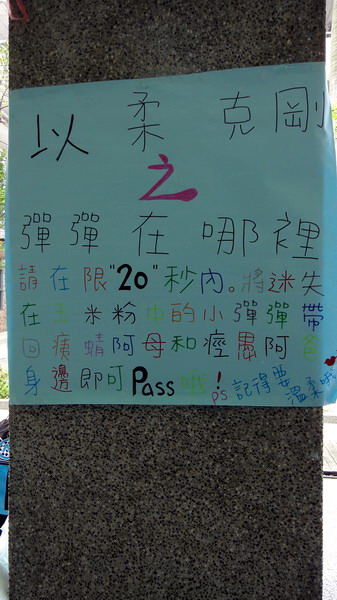 以柔克剛
之
彈彈在哪裡
請在限"20"秒內。將迷失
在玉米粉中的小彈彈帶
回癀蜻阿母和痙愚阿爸
身邊即可Pass哦!
ps.記得要
溫柔哦